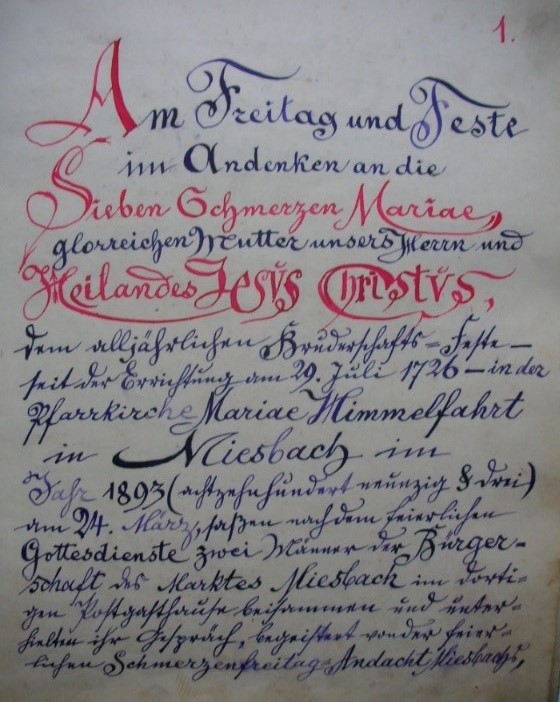 1.
Am Freitag und Feste
im Andenken an die
Sieben Schmerzen Mariae,
glorreichen Mutter unsers Herrn und
Heilandes Jesus Christus,
dem alljährlichen Bruderschafts-Feste —
seit der Errichtung am 29. Juli 1726 — in der
Pfarrkirche Mariae Himmelfahrt
in Miesbach im
Jahr 1893 (achtzehnhundert neunzig & drei)
am 24. März, saßen nach dem feierlichen
Gottesdienste zwei Männer der Bürger-
schaft des Marktes Miesbach im dorti-
gen Postgasthause beisammen und unter-
hielten ihr Gespräch, begeistert von der feier-
lichen Schmerzenfreitag-Andacht Miesbachs,